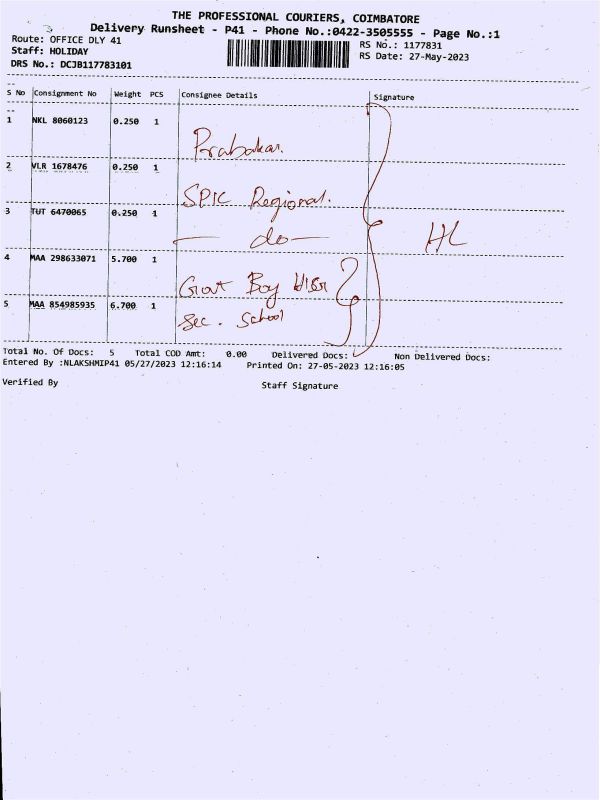 THE PROFESSIONAL COURIERS, COIMBATORE
Delivery Runsheet - P41 - Phone No.:0422-3505555 - Page No.:1
Route: OFFICE DLY 41
RS No.: 1177831
Staff: HOLIDAY
RS Date: 27-May-2023
DRS No.: DCJB117783101
S No Consignment No Weight PCS Consignee Details Signature
1 NKL 8060123 0.250 1 Prabakar.
2 VLR 1678476 0.250 1 SPIC Regional.
3 TUT 6470065 0.250 1 — do — HL
4 MAA 298633071 5.700 1 Govt Boy HiGr
5 MAA 854985935 6.700 1 Sec. School
Total No. Of Docs: 5 Total COD Amt: 0.00 Delivered Docs: Non Delivered Docs:
Entered By :NLAKSHMIP41 05/27/2023 12:16:14 Printed On: 27-05-2023 12:16:05
Verified By Staff Signature